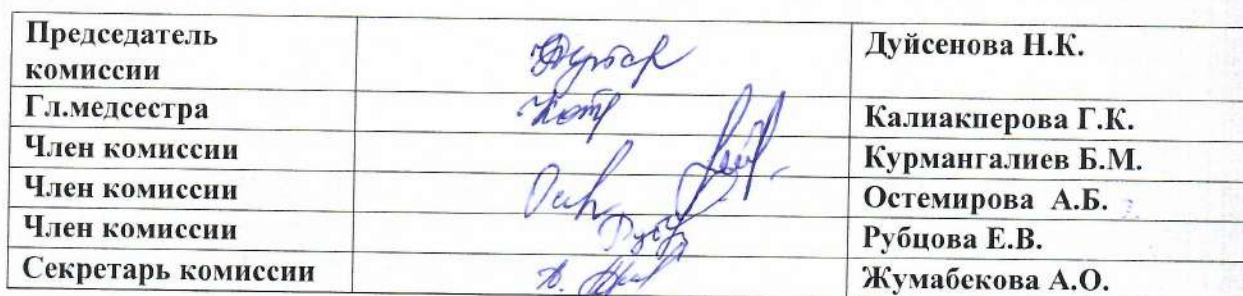 Председатель Дуйсенова Н.К.
комиссии
Гл.медсестра Калиакперова Г.К.
Член комиссии Курмангалиев Б.М.
Член комиссии Остемирова А.Б.
Член комиссии Рубцова Е.В.
Секретарь комиссии Жумабекова А.О.